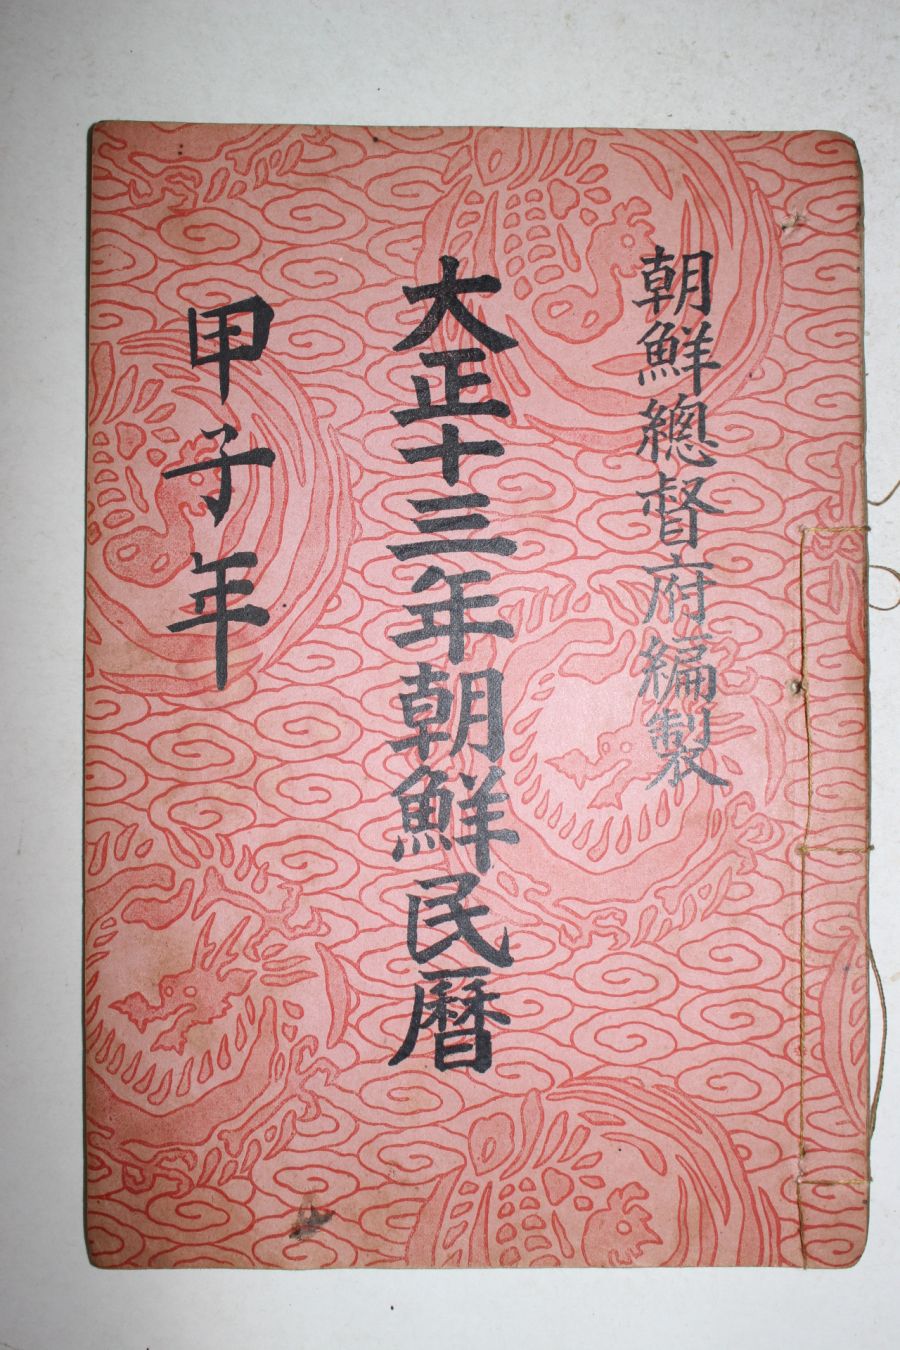 朝鮮總督府編製
大正十三年朝鮮民曆
甲子年